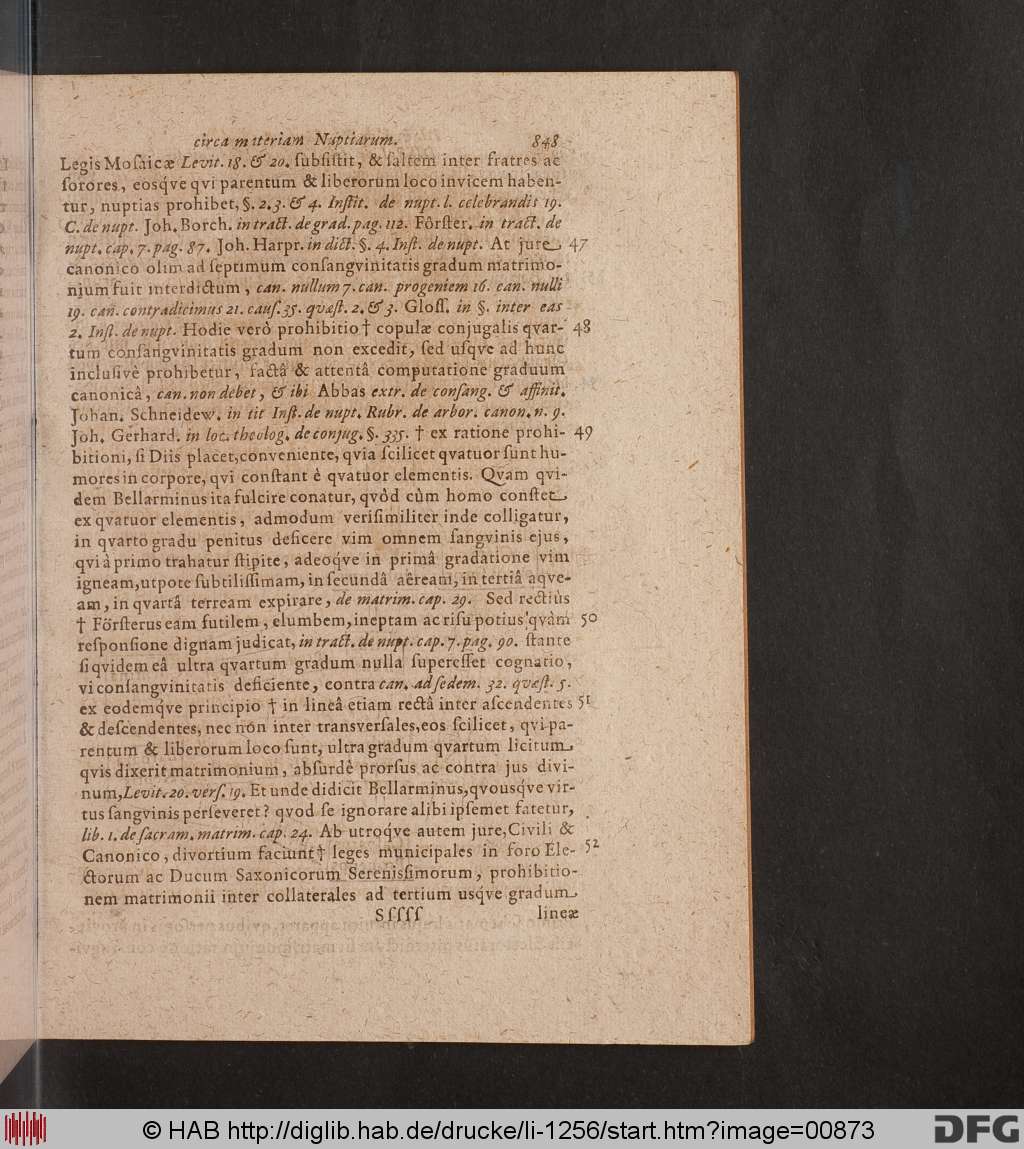 circa materiam Nuptiarum. 848
Legis Mosaicæ Levit. 18. & 20. ſubſiſtit, & ſaltem inter fratres ac
ſorores, eosq́ve qvi parentum & liberorum loco invicem haben-
tur, nuptias prohibet, §. 2. 3. & 4. Inſtit. de nupt. l. celebrandis 19.
C. de nupt. Joh. Borch. in tract. de grad. pag. 112. Fôrſter. in tract. de
nupt. cap. 7. pag. 87. Joh. Harpr. in dict. §. 4. Inſt. de nupt. At jure 47
canonico olim ad ſeptimum conſangvinitatis gradum matrimo-
nium fuit interdictum, can. nullum 7. can. progeniem 16. can. nulli
19. can. contradicimus 21. cauſ. 35. qvæſt. 2. & 3. Gloſſ. in §. inter eas
2. Inſt. de nupt. Hodie verò prohibitio † copulæ conjugalis qvar- 48
tum conſangvinitatis gradum non excedit, ſed uſqve ad hunc
incluſivè prohibetur, factâ & attentâ computatione graduum
canonicâ, can. non debet, & ibi Abbas extr. de conſang. & affinit.
Johan. Schneidew. in tit Inſt. de nupt. Rubr. de arbor. canon. n. 9.
Joh. Gerhard. in loc. theolog. de conjug. §. 335. † ex ratione prohi- 49
bitioni, ſi Diis placet, conveniente, qvia ſcilicet qvatuor ſunt hu-
mores in corpore, qvi conſtant è qvatuor elementis. Qvam qvi-
dem Bellarminus ita fulcire conatur, qvòd cùm homo conſtet
ex qvatuor elementis, admodum veriſimiliter inde colligatur,
in qvarto gradu penitus deficere vim omnem ſangvinis ejus,
qvi à primo trahatur ſtipite, adeoq́ve in primâ gradatione vim
igneam, utpote ſubtiliſſimam, in ſecundâ aëream, in tertiâ aqve-
am, in qvartâ terream expirare, de matrim. cap. 29. Sed rectiùs
† Förſterus eam futilem, elumbem, ineptam ac riſu potius qvàm 50
reſponſione dignam judicat, in tract. de nupt. cap. 7. pag. 90. ſtante
ſi qvidem eâ ultra qvartum gradum nulla ſupereſſet cognatio,
vi conſangvinitatis deficiente, contra can. ad ſedem. 32. qvæſt. 5.
ex eodemq́ve principio † in lineâ etiam rectâ inter aſcendentes 51
& deſcendentes, nec non inter transverſales, eos ſcilicet, qvi pa-
rentum & liberorum loco ſunt, ultra gradum qvartum licitum
qvis dixerit matrimonium, abſurdè prorſus ac contra jus divi-
num, Levit. 20. verſ. 19. Et unde didicit Bellarminus, qvousq́ve vir-
tus ſangvinis perſeveret? qvod ſe ignorare alibi ipſemet fatetur,
lib. 1. de ſacram. matrim. cap. 24. Ab utroq́ve autem jure, Civili &
Canonico, divortium faciunt † leges municipales in foro Ele- 52
ctorum ac Ducum Saxonicorum Sereniſſimorum, prohibitio-
nem matrimonii inter collaterales ad tertium usq́ve gradum
Sſſſſ lineæ
© HAB http://diglib.hab.de/drucke/li-1256/start.htm?image=00873
DFG